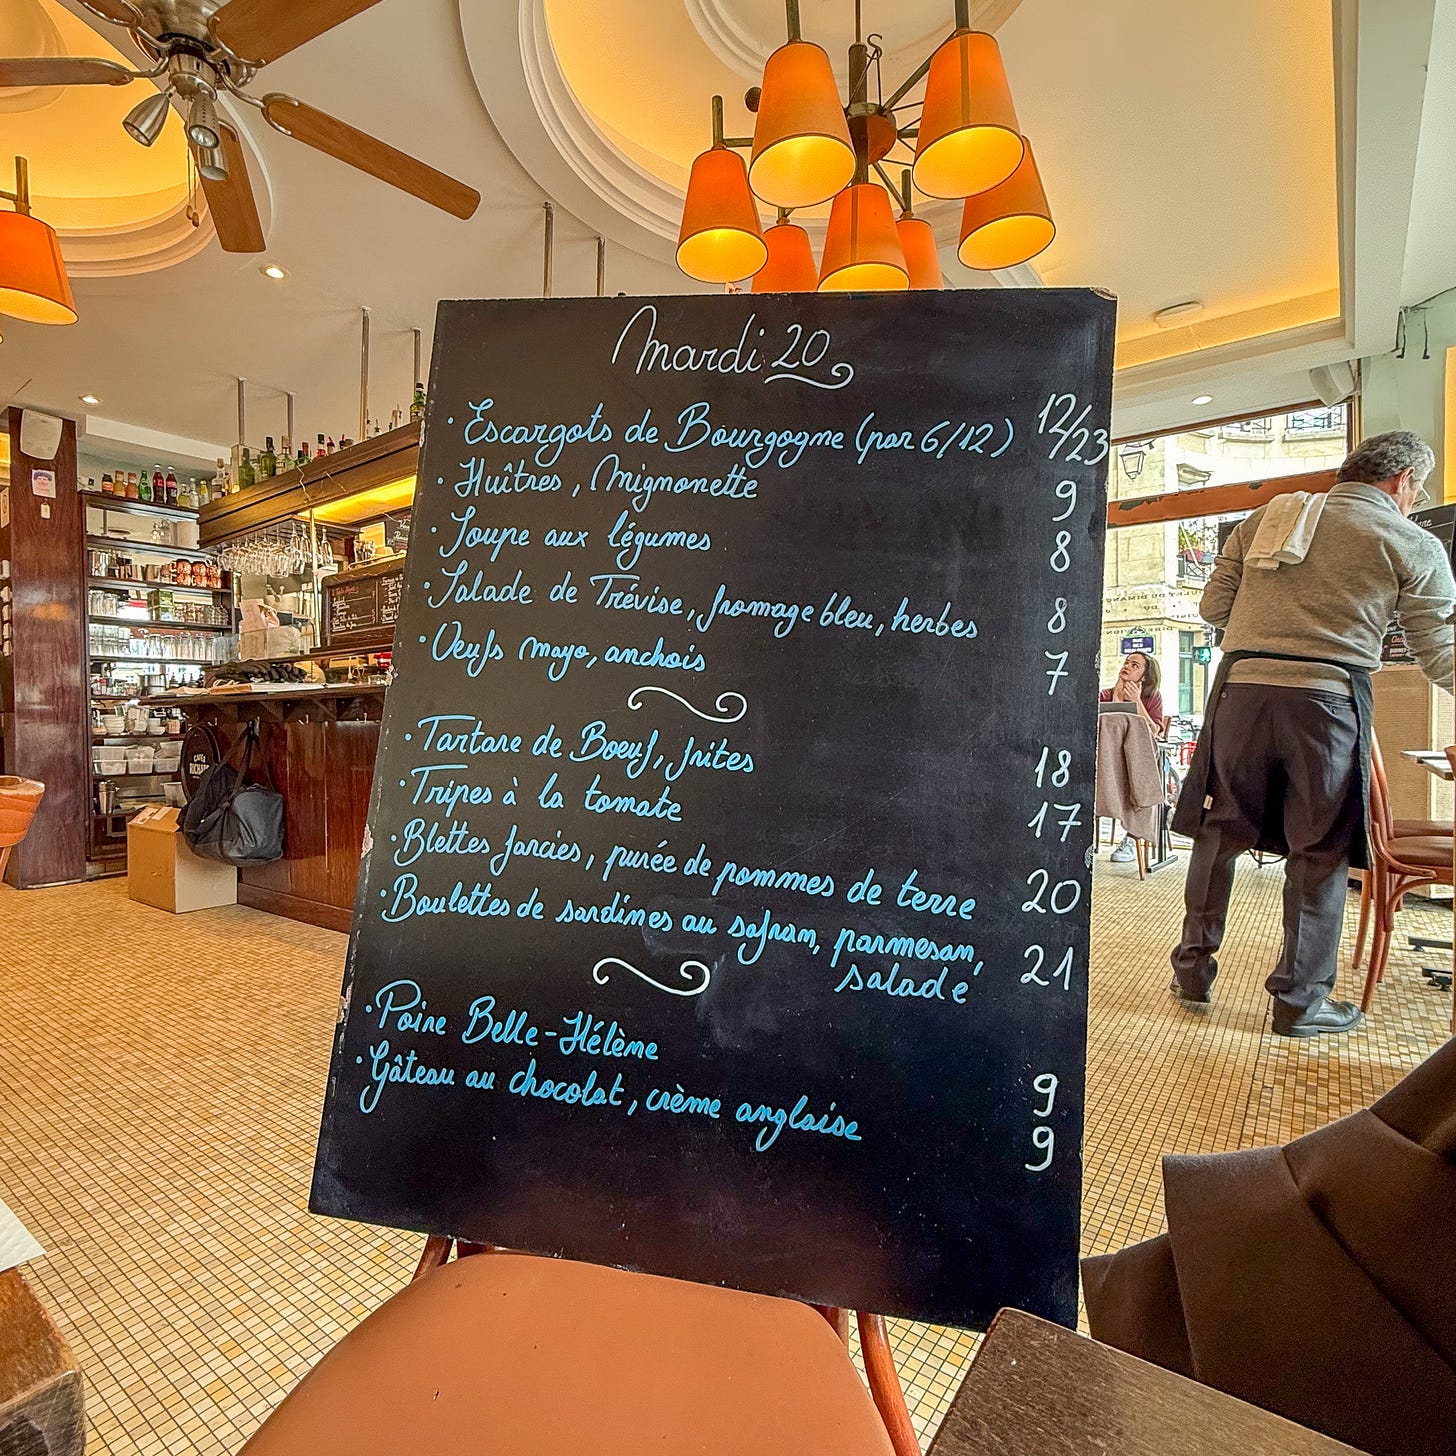 Mardi 20
· Escargots de Bourgogne (par 6/12) 12/23
· Huîtres, Mignonette 9
· Soupe aux légumes 8
· Salade de Trévise, fromage bleu, herbes 8
· Oeufs mayo, anchois 7
· Tartare de Boeuf, frites 18
· Tripes à la tomate 17
· Blettes farcies, purée de pommes de terre 20
· Boulettes de sardines au safran, parmesan, 21
salade
· Poire Belle-Hélène 9
· Gâteau au chocolat, crème anglaise 9